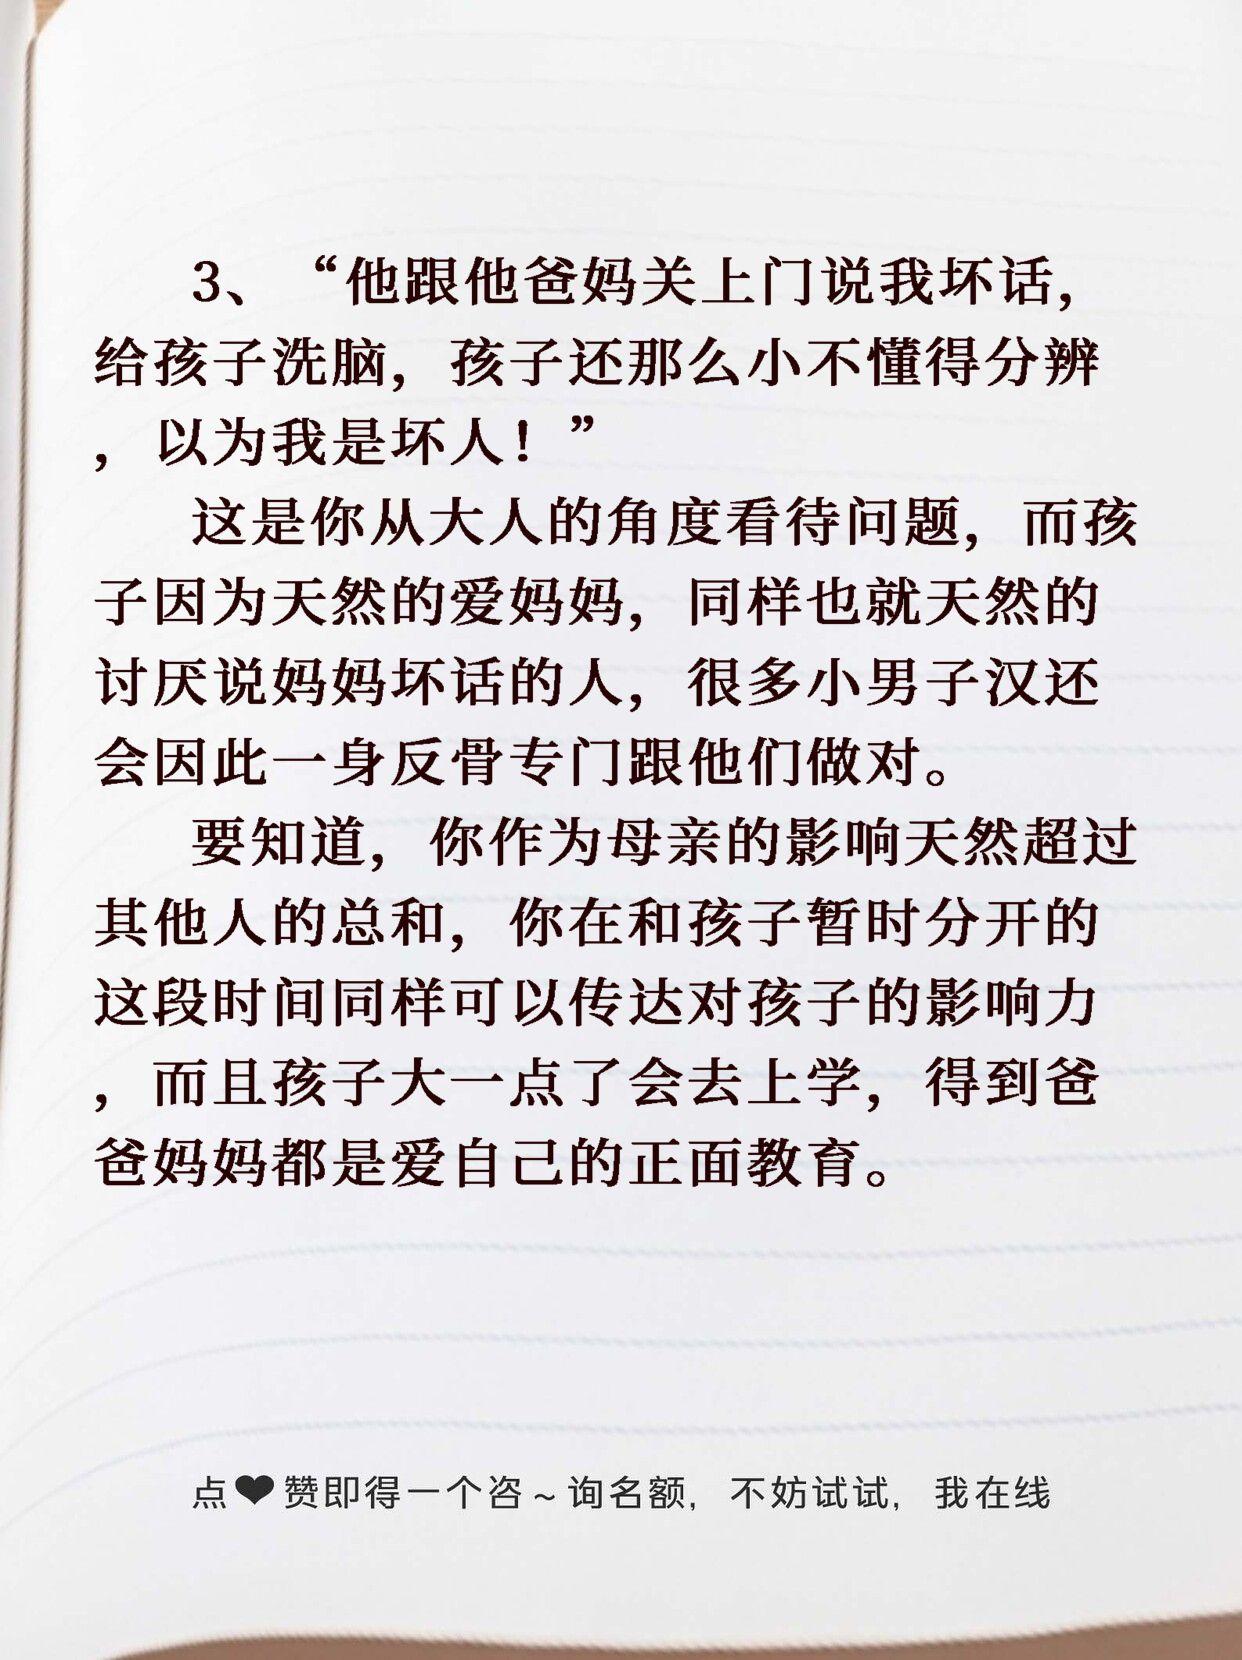 3、“他跟他爸妈关上门说我坏话，
给孩子洗脑，孩子还那么小不懂得分辨
，以为我是坏人！”
这是你从大人的角度看待问题，而孩
子因为天然的爱妈妈，同样也就天然的
讨厌说妈妈坏话的人，很多小男子汉还
会因此一身反骨专门跟他们做对。
要知道，你作为母亲的影响天然超过
其他人的总和，你在和孩子暂时分开的
这段时间同样可以传达对孩子的影响力
，而且孩子大一点了会去上学，得到爸
爸妈妈都是爱自己的正面教育。
点❤赞即得一个咨～询名额，不妨试试，我在线